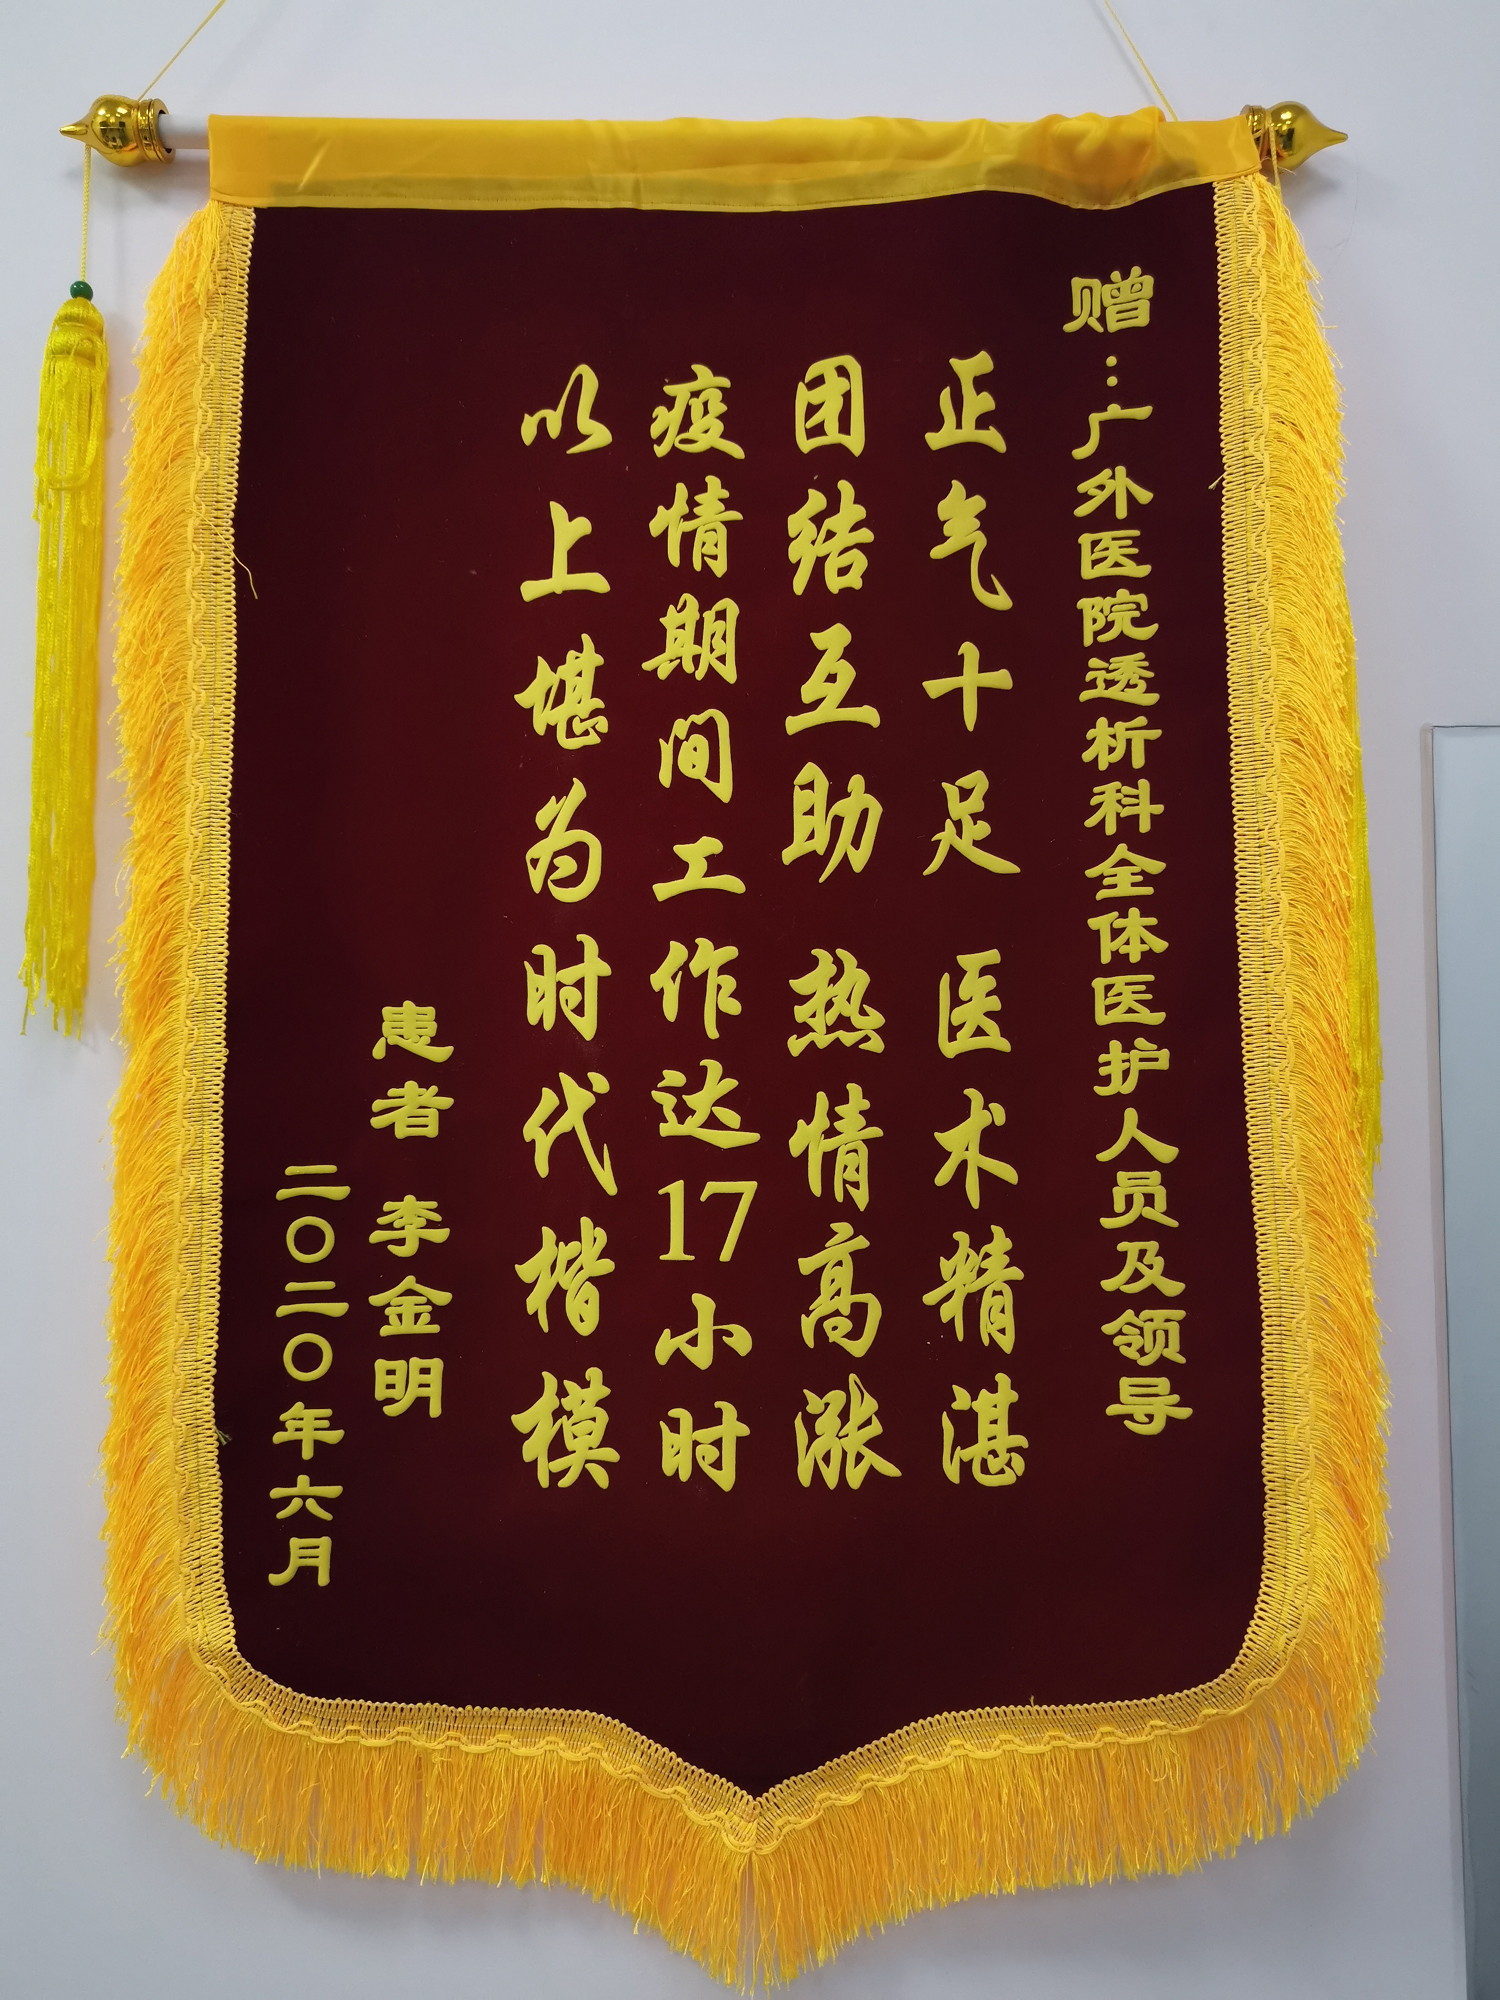 赠：广外医院透析科全体医护人员及领导
正气十足 医术精湛
团结互助 热情高涨
疫情期间工作达17小时
以上堪为时代楷模
患者 李金明
二〇二〇年六月